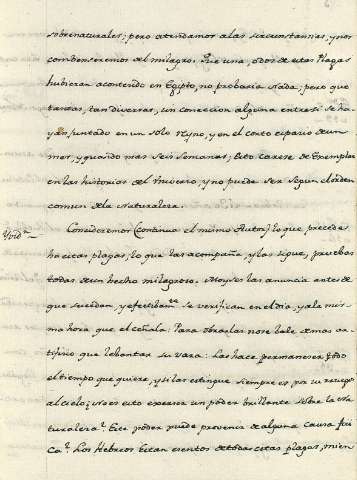 sobrenaturales; pero atendamos a las circunstancias, y nos
convenseremos del milagro. Que una, o dos de estas Plagas
hubieran acontecido en Egipto, no probaria nada; pero que
tantas, tan diversas, sin conecion alguna entre si se ha-
yan juntado en un solo Reyno, y en el corto espacio de un
mes, y quando mas seis semanas; Esto carese de Exemplar
en las historias del Universo, y no puede ser segun el orden
comun de la Naturaleza.
Consideremos (continua el mismo Autor) lo que precede
ha estas plagas, lo que las acompaña, y las sigue, pruebas
todas de un hecho milagroso. Moyses las anuncia antes de
que sucedan, y efectibamte se verifican en el dia, y a la mis-
ma hora que el ceñala: Para obrarlas no se bale de mas ar-
tificio que lebantar su vara: Las hace permaneser todo
el tiempo que quiere, y si las estingue siempre es, por su ruego
al cielo; No es esto exercer un poder brillante sobre la Na-
turaleza? Este poder puede provenir de alguna causa fisi-
ca? Los Hebreos estan esentos de todas estas plagas, mien